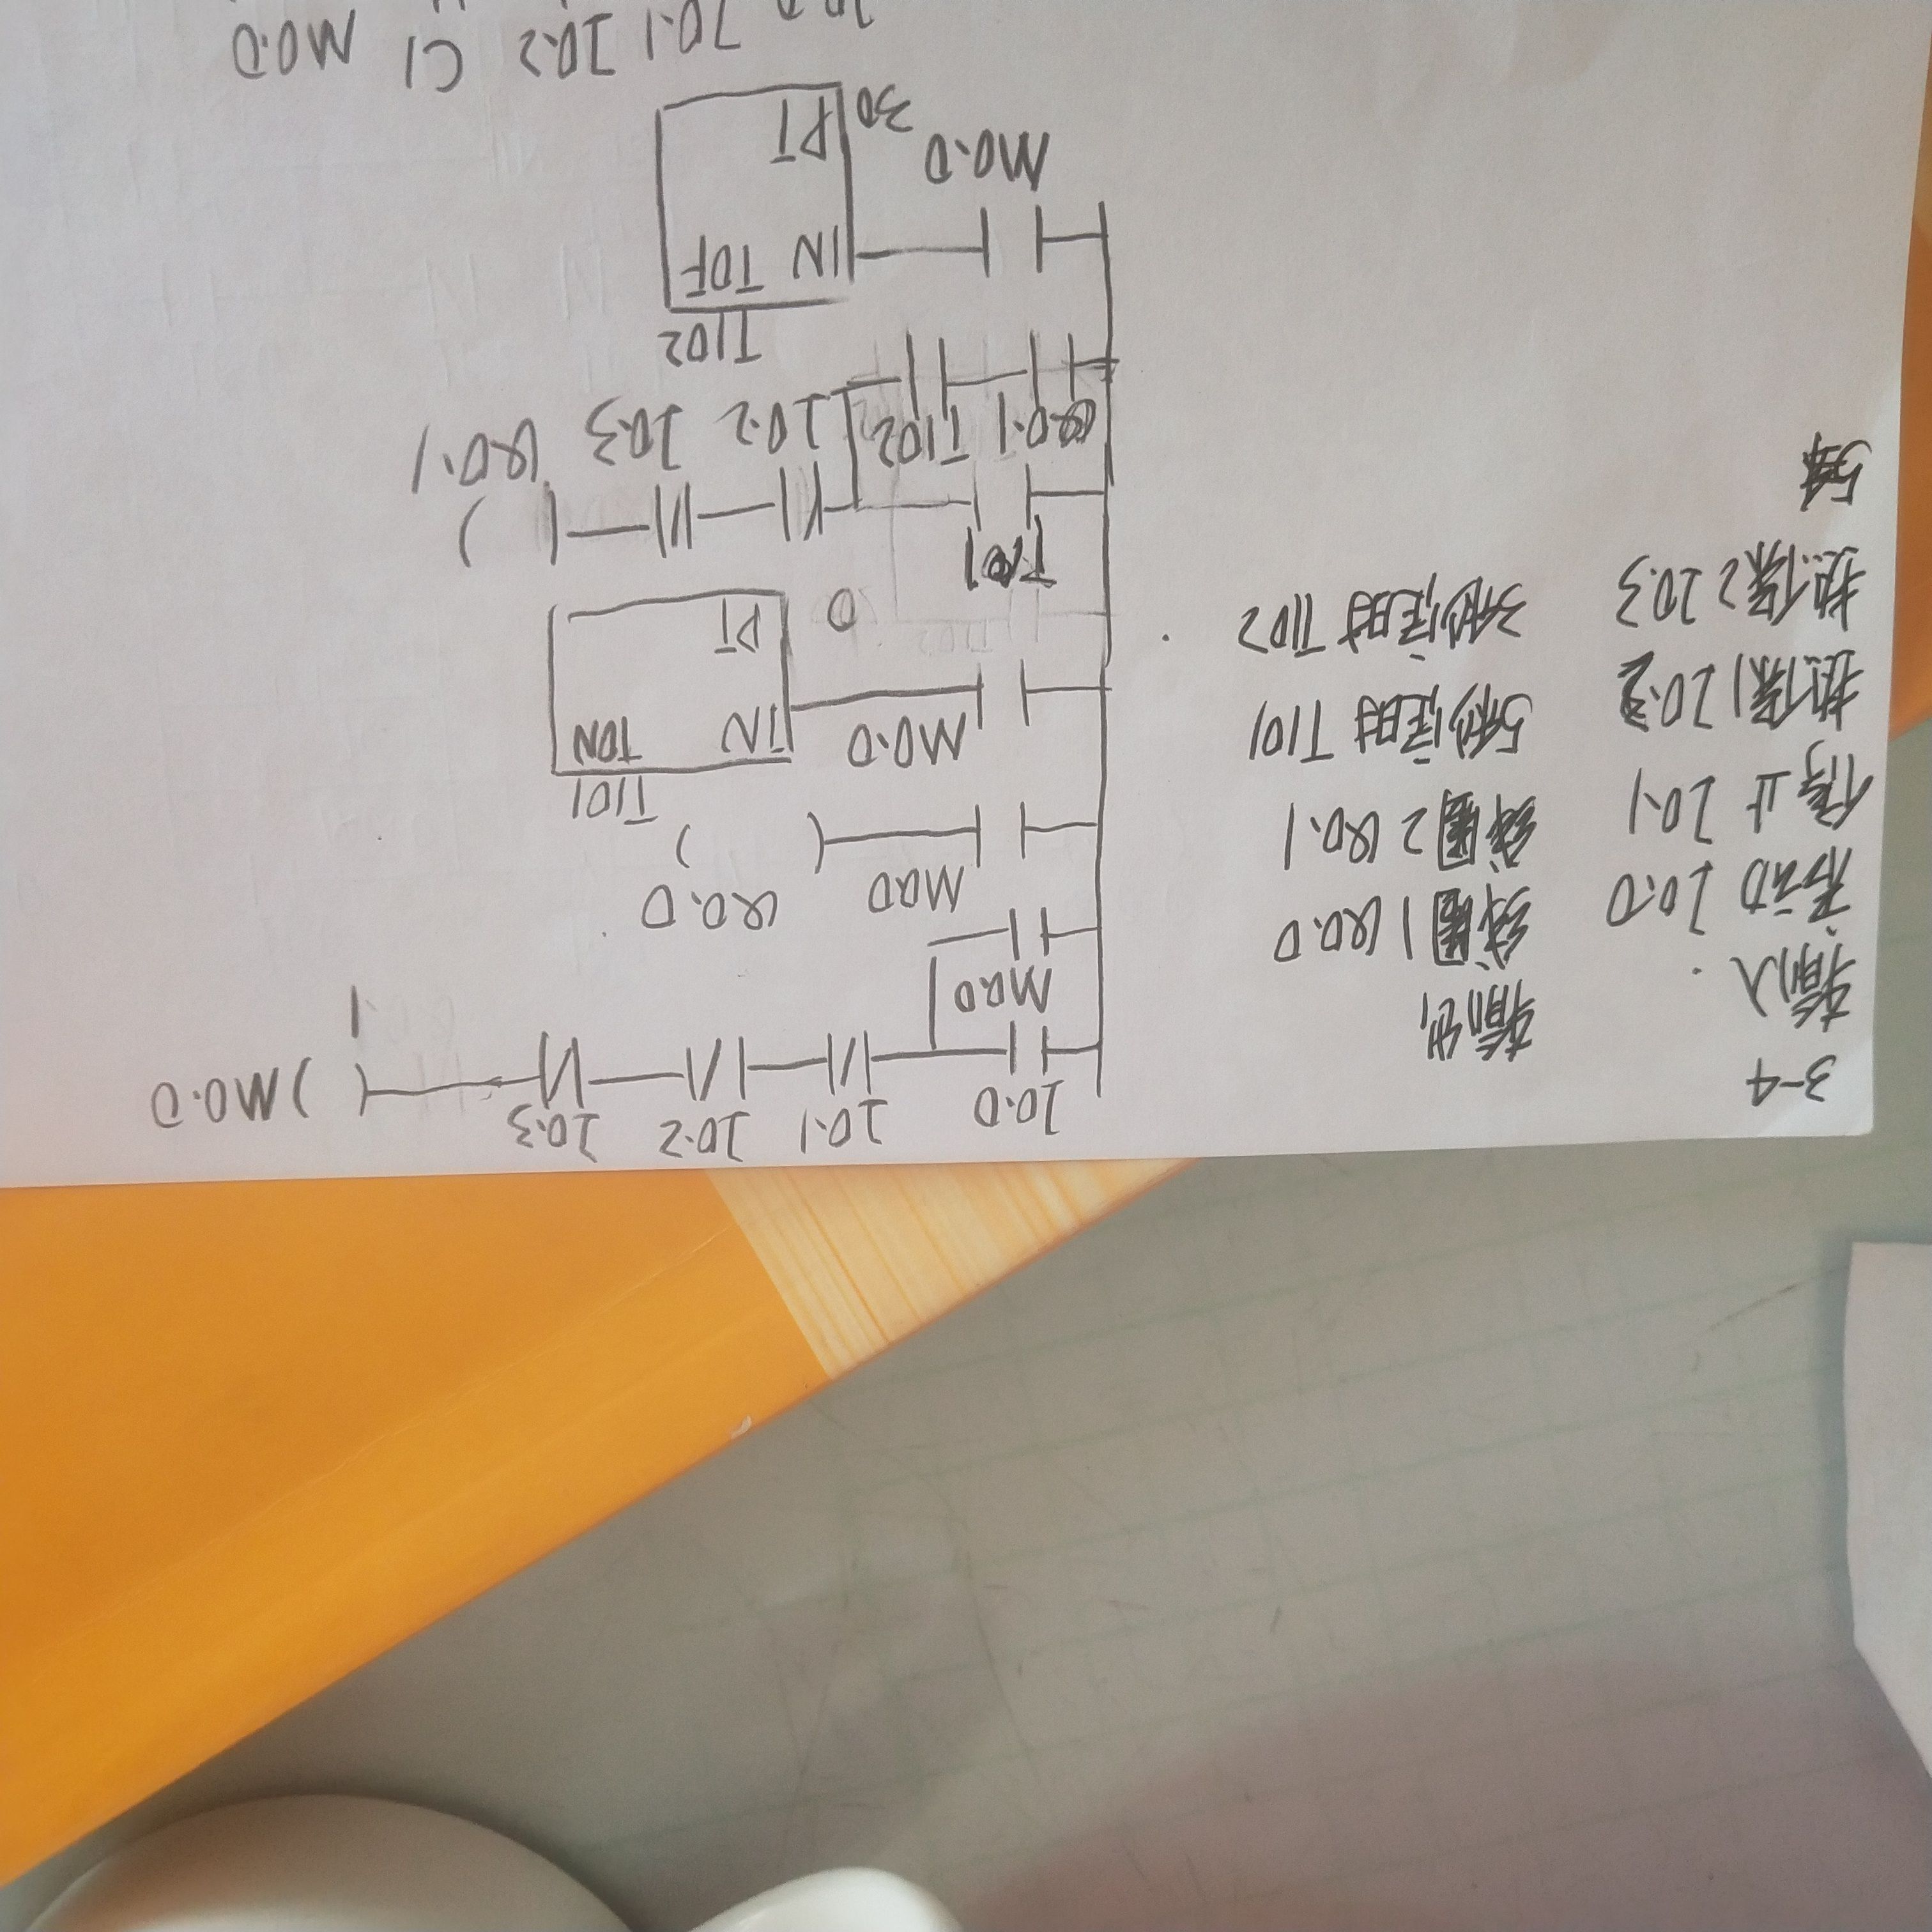 3-4
输入
启动 I0.0
停止 I0.1
热保1 I0.2
热保2 I0.3
输出
线圈1 Q0.0
线圈2 Q0.1
5秒定时 T101
3秒定时 T102
I0.0 I0.1 I0.2 I0.3
M0.0
M0.0
M0.0 Q0.0
T101
M0.0 IN TON
PT
T101
I0.2 I0.3 Q0.1
Q0.1 T102
T102
IN TOF
M0.0
30 PT
I0.1 I0.2 C1 M0.0